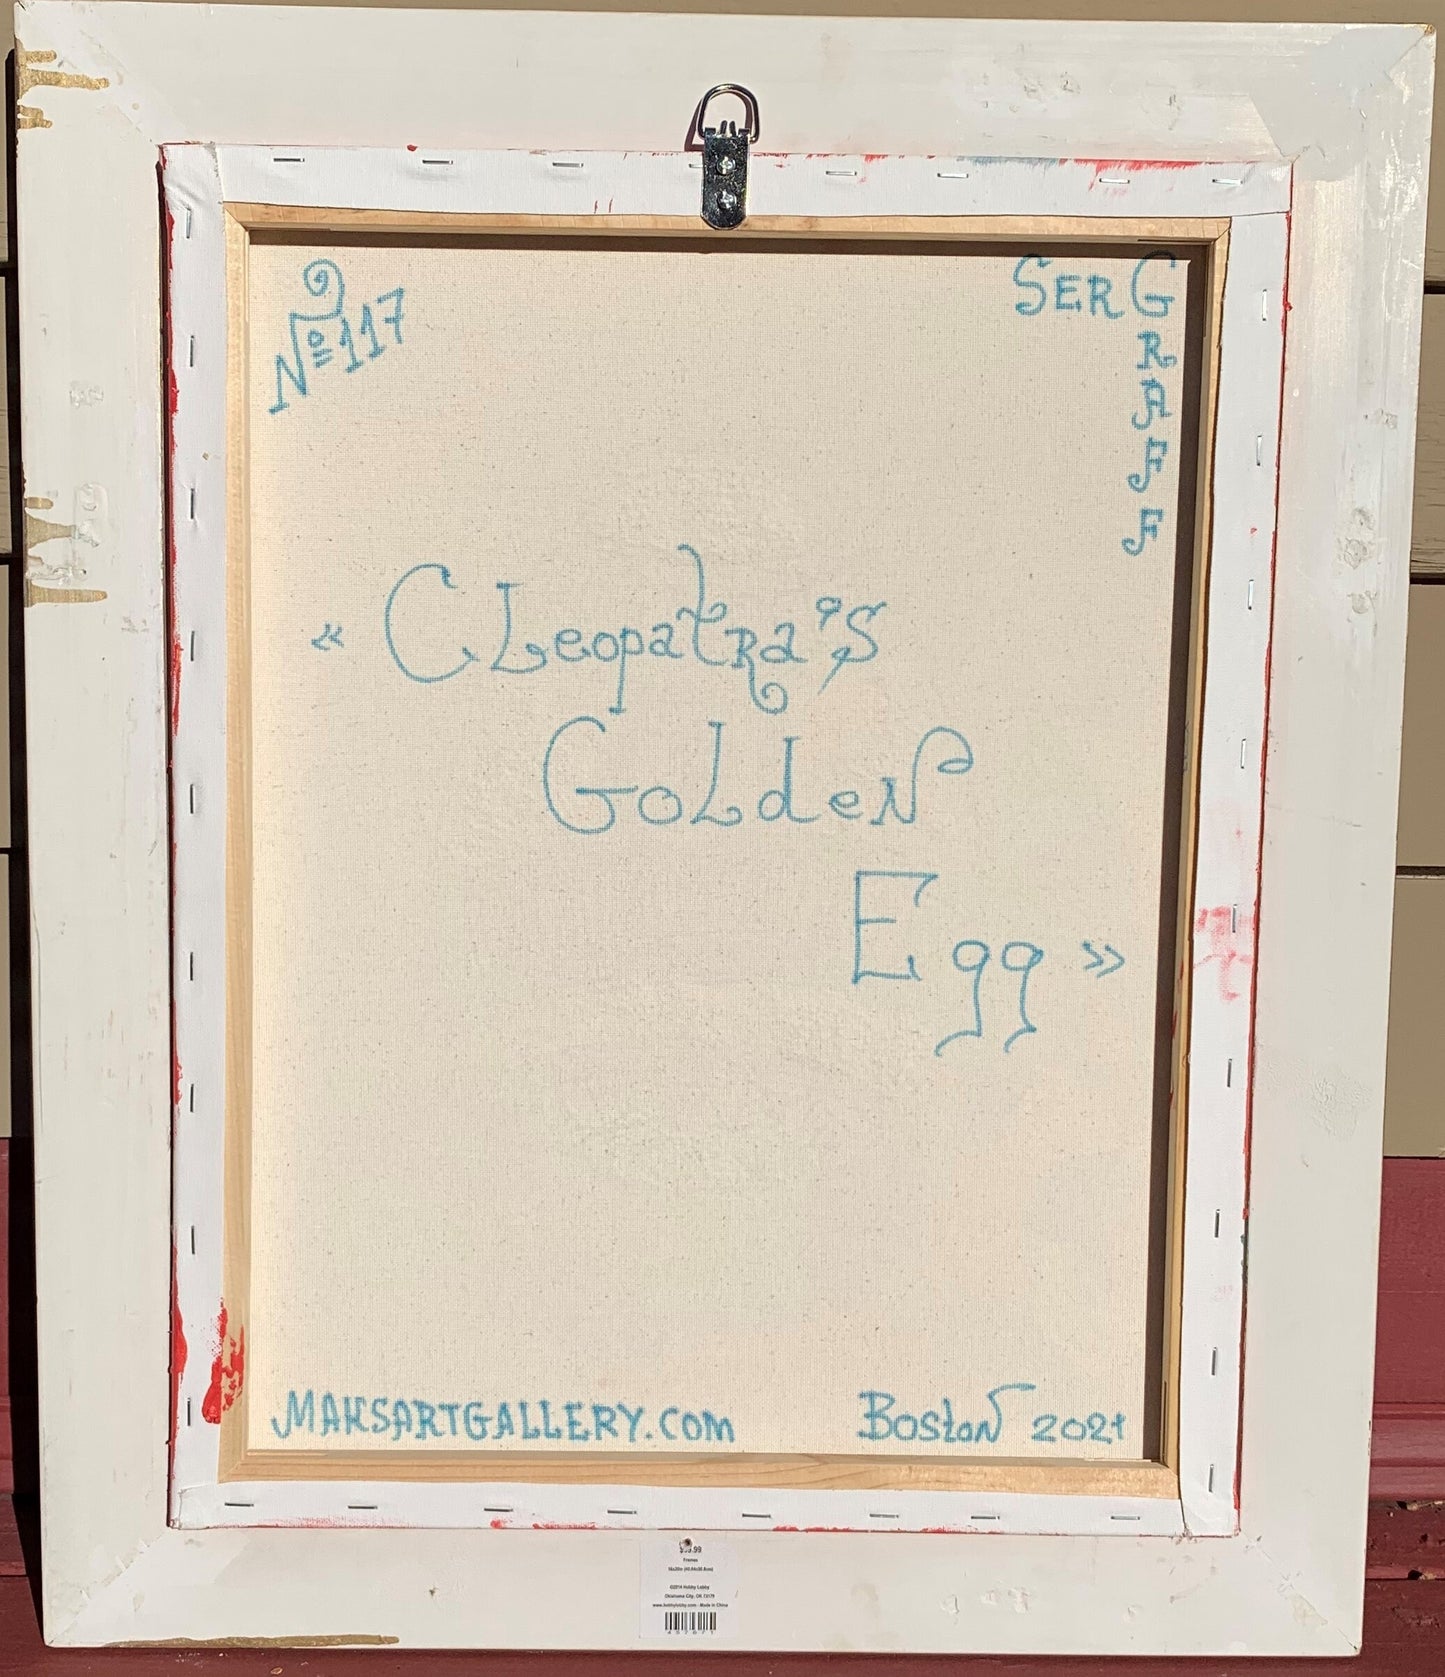 №117
SERGRAFF
« CLeopatRa's
GoLdeN
Egg »
MAKSARTGALLERY.COM
BostoN 2021
Frames
16x20in (40.64x50.8cm)
©2014 Hobby Lobby
Oklahoma City, OK 73179
www.hobbylobby.com - Made in China
457671